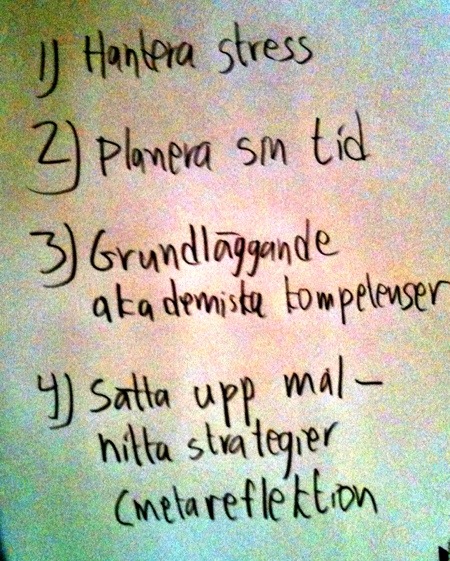 1) Hantera stress
2) Planera sin tid
3) Grundläggande
akademiska kompetenser
4) Sätta upp mål –
hitta strategier
(metareflektion